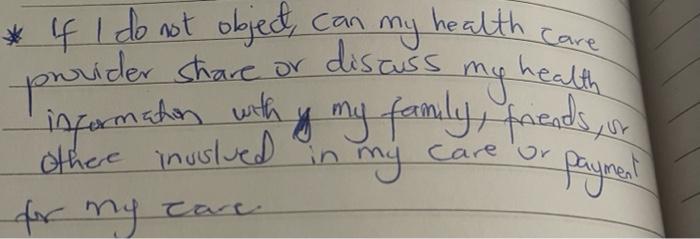 * If I do not object, can my health care
provider share or discuss my health
information with my family, friends, or
othere involved in my care or payment
for my care.